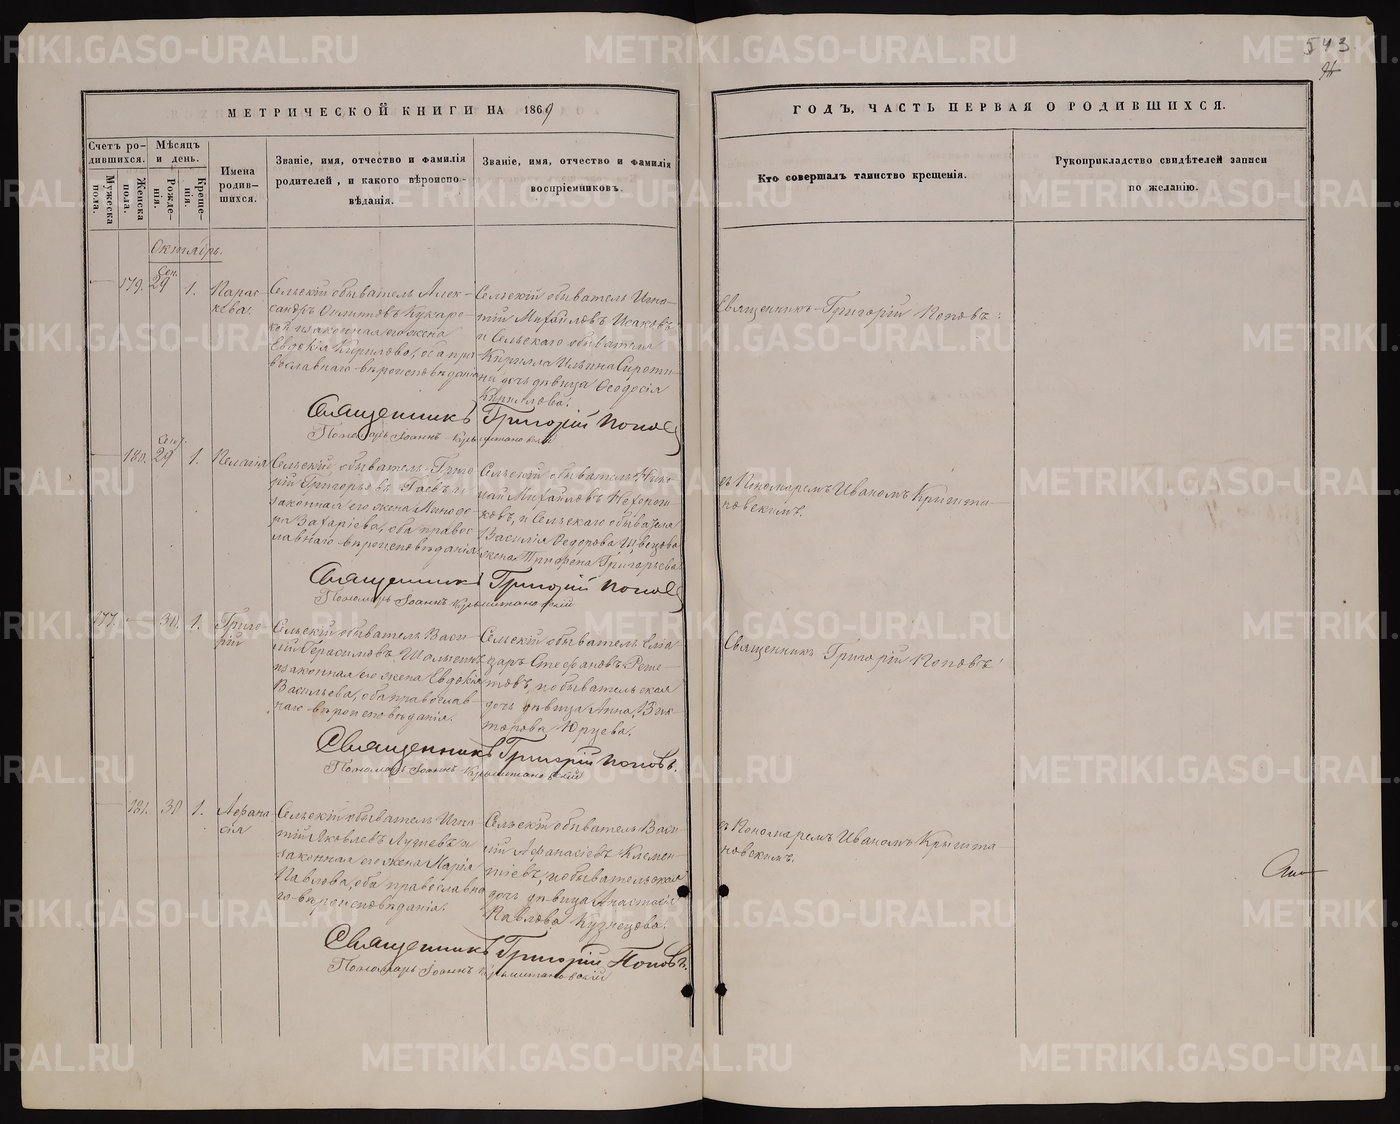 543
МЕТРИЧЕСКОЙ КНИГИ НА 1869
ГОДЪ, ЧАСТЬ ПЕРВАЯ О РОДИВШИХСЯ.
Счетъ ро-
дившихся.
Мужеска
пола.
Женска
пола.
Мѣсяцъ
и день.
Рожде-
нія.
Креще-
нія.
Имена
родив-
шихся.
Званіе, имя, отчество и фамилія
родителей, и какого вѣроиспо-
вѣданія.
Званіе, имя, отчество и фамилія
воспріемниковъ.
Кто совершалъ таинство крещенія.
Рукоприкладство свидѣтелей записи
по желанію.
Октябрь.
179. Сен. 29 1.
Парас-
кева.
Сельскій обыватель Алек-
сандръ
законная его жена
Евдокія Кирилова, оба пра-
вославнаго вѣроисповѣданія
Сельскій обыватель Игна-
тій Михайловъ Исаковъ
и Сельскаго обывателя
Кирилла Ильина Сироти-
на дочь дѣвица Ѳеодосія
Кирилова.
Священникъ Григорій Поповъ.
Священникъ Григорій Попов
Пономарь Іоаннъ
180. Сент. 29 1.
Пелагія
Сельскій обыватель Григо-
рій Григорьевъ и
законная его жена Минодо-
ра Захарiева, оба правос-
лавнаго вѣроисповѣданія
Сельскій обыватель Нико-
лай Михайловъ
и Сельскаго обывателя
Василія Ѳедорова Швецова
жена Трифена Григорьева
съ Пономаремъ Иваномъ Кришта-
новскимъ.
Священникъ Григорій Попов
Пономарь Іоаннъ
177. 30. 1.
Григо-
рій
Сельскій обыватель Васи-
лій Герасимовъ
и законная его жена Евдокія
Васильева, оба православ-
наго вѣроисповѣданія.
Сельскій обыватель Елиа-
заръ Стефановъ Реше-
товъ, и обывательская
дочь дѣвица Анна Вик-
торова Юрцева.
Священникъ Григорій Поповъ.
Священникъ Григорій Поповъ.
Пономарь Іоаннъ
181. 30 1.
Аѳана-
сія
Сельскій обыватель Игна-
тій Яковлевъ и
законная его жена Марія
Павлова, оба православна-
го вѣроисповѣданія.
Сельскій обыватель Васи-
лій Афанасіевъ Клемен-
тіевъ, и обывательская
дочь дѣвица Анастасія
Павлова Кузнецова.
съ Пономаремъ Иваномъ Крышта-
новскимъ.
Священникъ Григорій Поповъ.
Пономарь Іоаннъ
METRIKI.GASO-URAL.RU